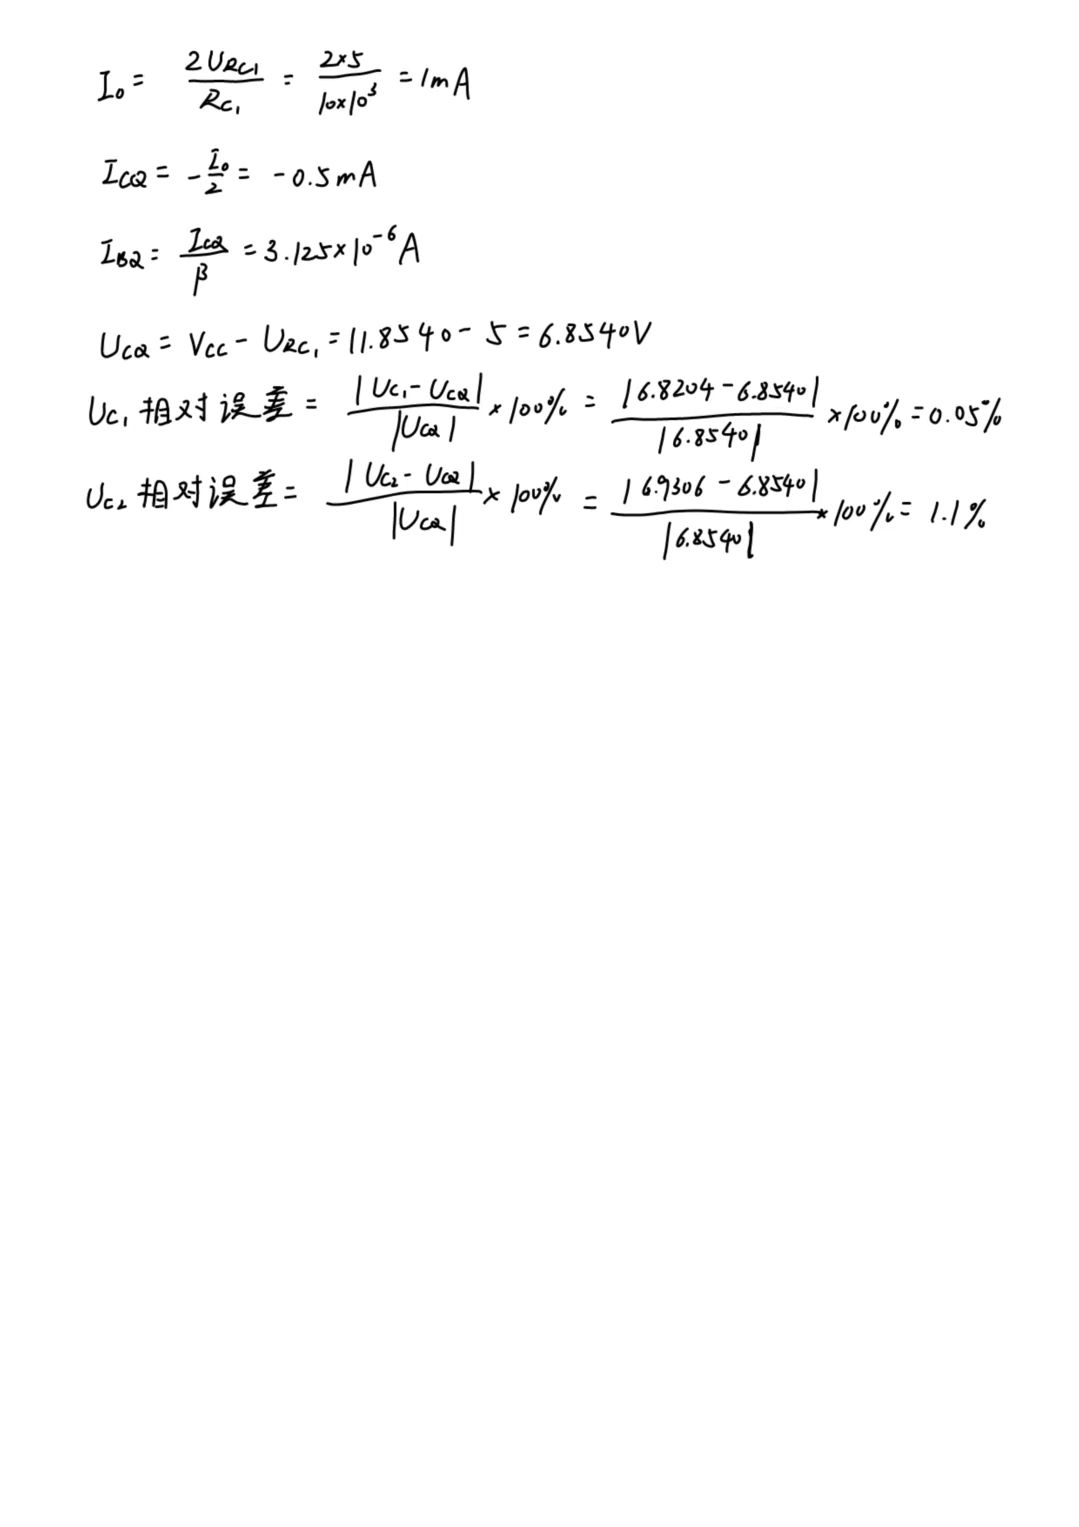 I₀ = 2U_RC₁ / R_C₁ = 2×5 / 10×10³ = 1mA
I_CQ = -I₀/2 = -0.5mA
I_BQ = I_CQ / β = 3.125×10⁻⁶A
U_CQ = V_CC - U_RC₁ = 11.8540 - 5 = 6.8540V
U_C₁ 相对误差 = |U_C₁ - U_CQ| / |U_CQ| × 100% = |6.8204 - 6.8540| / |6.8540| × 100% = 0.05%
U_C₂ 相对误差 = |U_C₂ - U_CQ| / |U_CQ| × 100% = |6.9306 - 6.8540| / |6.8540| × 100% = 1.1%